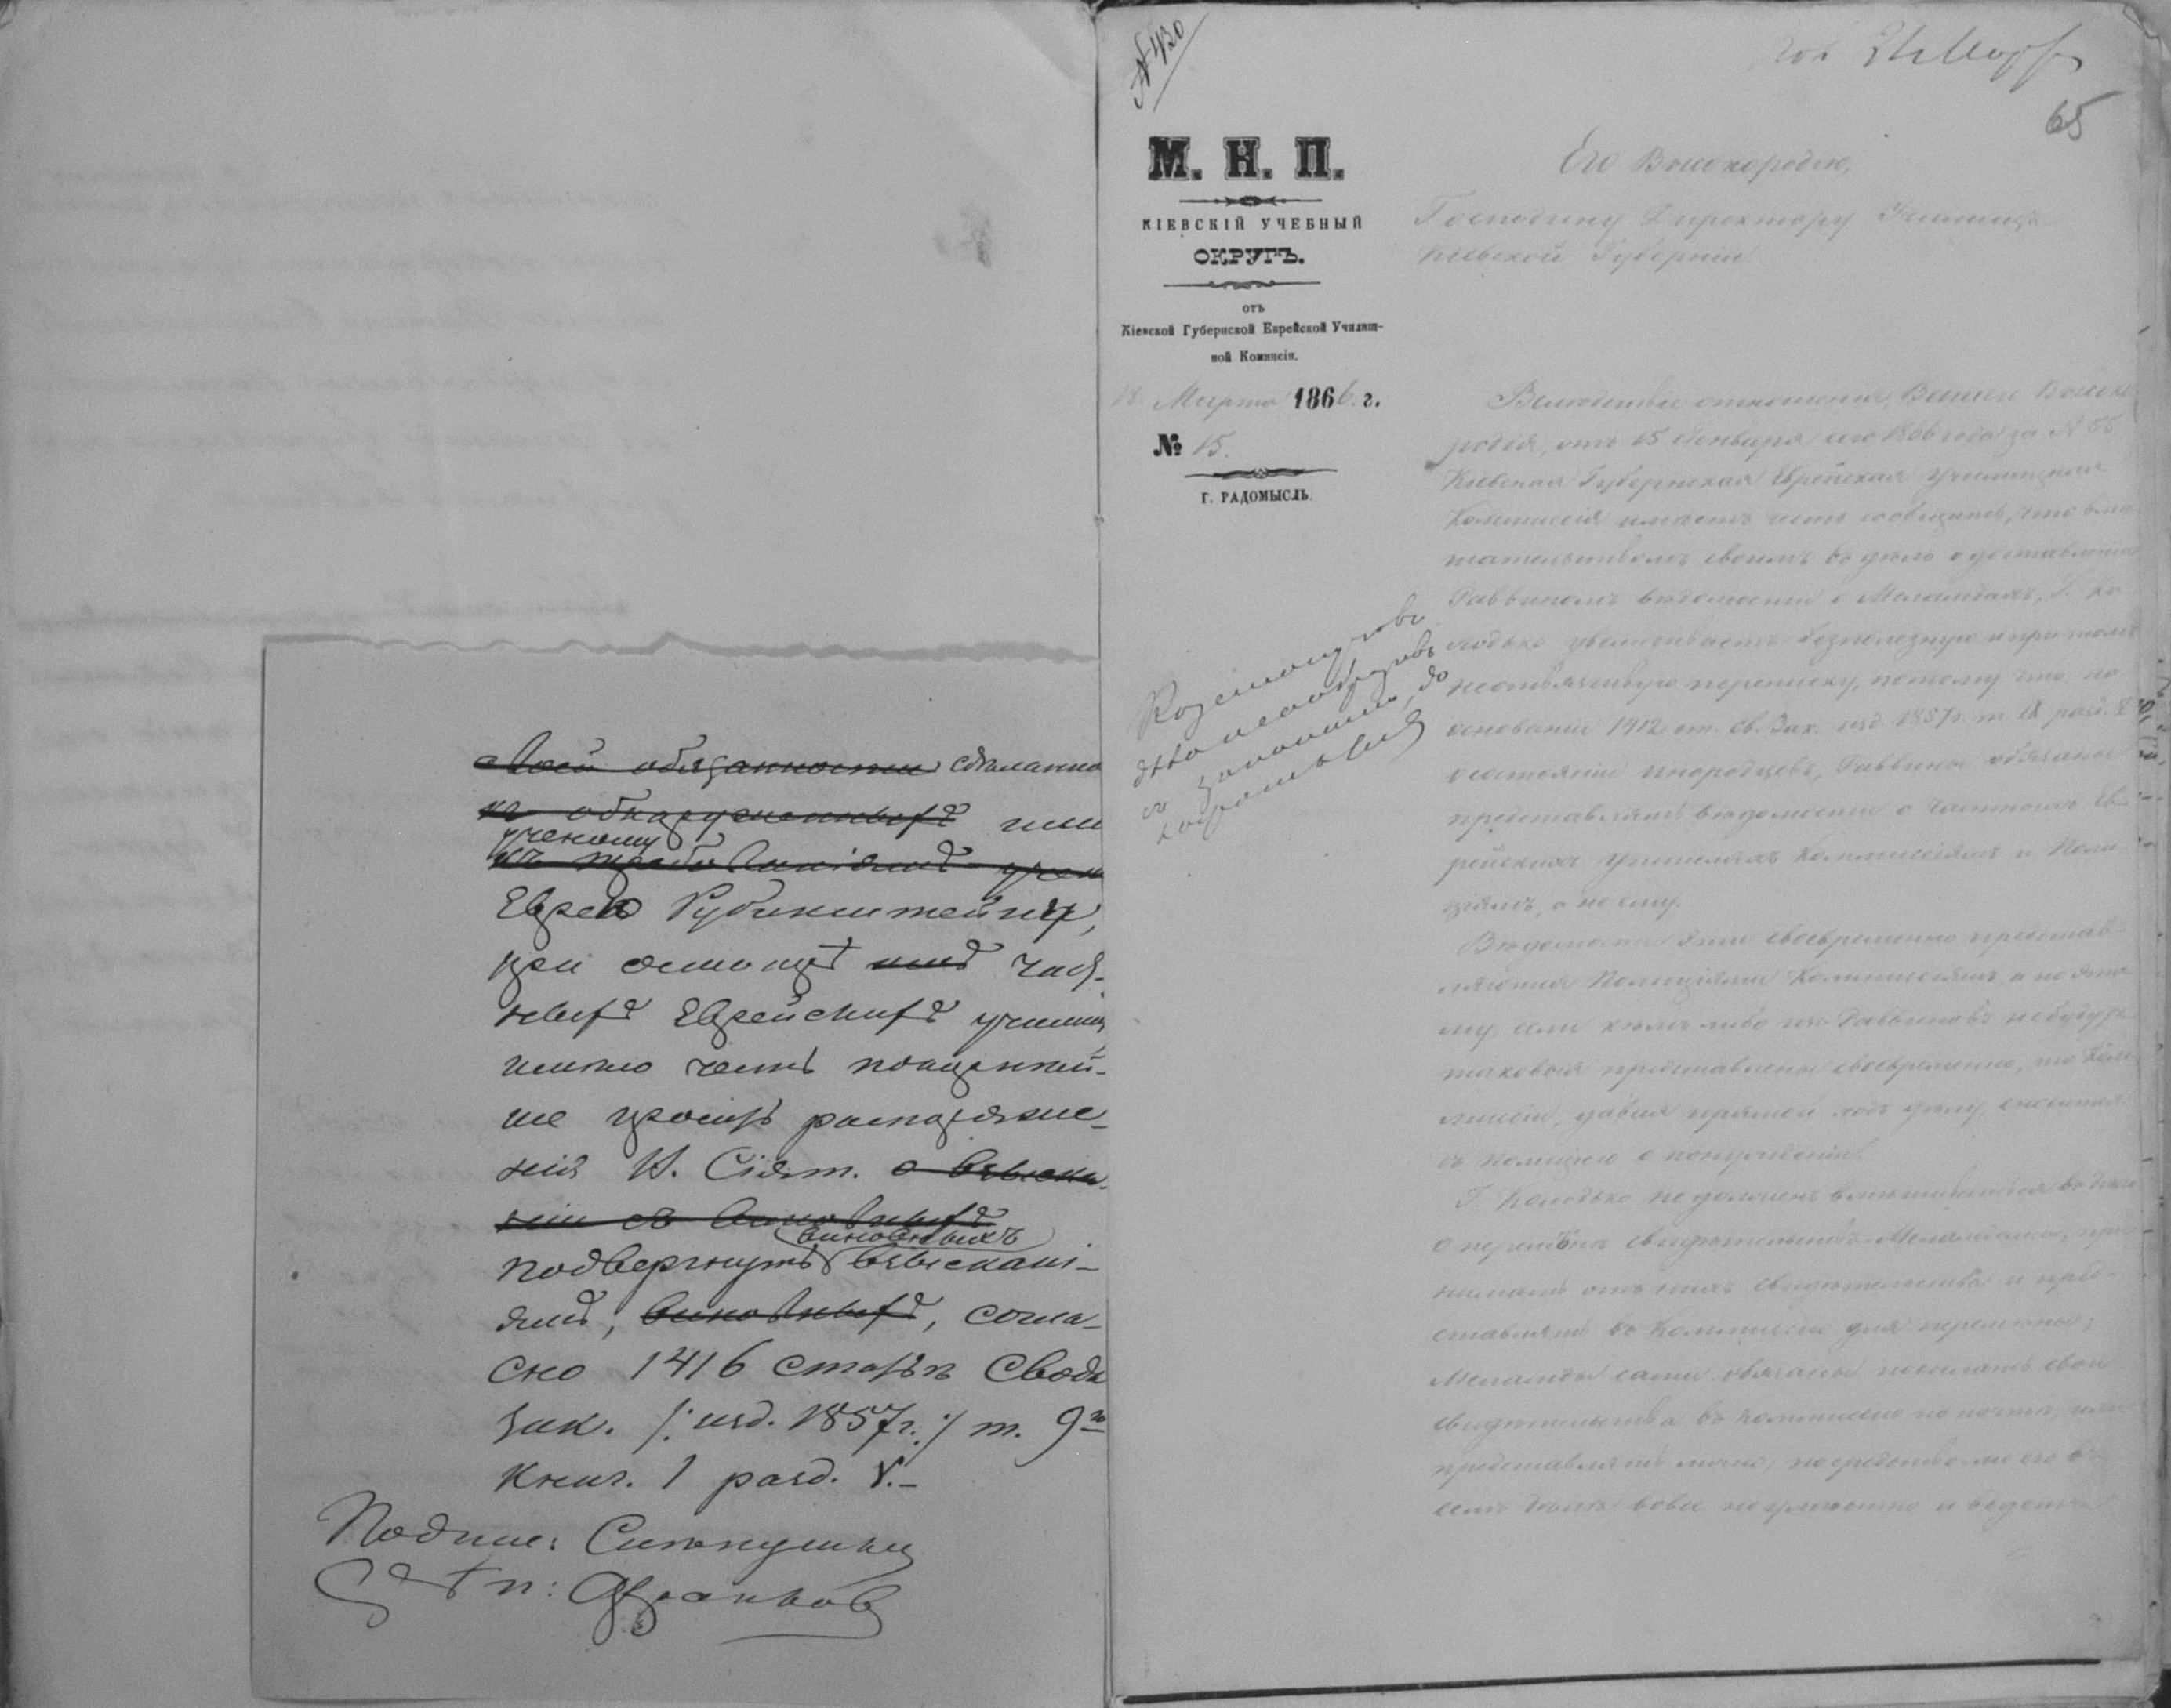 своей обязанности сдѣланно
не обнаруженныхъ или
ученому
къ требованіямъ учен
Еврею Рубинштейну,
при осмотрѣ имъ част-
ныхъ Еврейскихъ училищ
имѣю честь покорнѣй-
ше просить распоряже-
нія В. Сіят. о взыска-
ніи съ виновныхъ
виновныхъ
подвергнуть взыскані-
ямъ, виновныхъ, согла-
сно 1416 статьѣ Свода
Зак. /: изд. 1857 г. :/ т. 9го
книг. 1 разд. V.–
Подпис:
№ 430
65
М. Н. П.
КІЕВСКІЙ УЧЕБНЫЙ
ОКРУГЪ.
отъ
Кіевской Губернской Еврейской Училищ-
ной Коммисіи.
Марта 1866 г.
№ 15.
Г. РАДОМЫСЛЬ.
Его Высокородію,
Господину Директору Училищъ
Кіевской Губерніи
Вслѣдствіе отношенія Вашего Высоко
родія, отъ 15 Генваря сего 1866 года за №
Кіевская Губернская Еврейская Училищная
Коммиссія имѣетъ честь сообщить, что вмѣ
шательствомъ своимъ въ дѣло о доставленіи
Раввиномъ вѣдомости о Меламдахъ, Г. Ко
лодько увеличиваетъ безполезную и притомъ
переписку, потому что на
основаніи 1412 ст. Св. Зак. изд. 1857 г. т. IX разд. V
о состояніи инородцевъ, Раввины обязаны
представлять вѣдомости о частныхъ Ев
рейскихъ учителяхъ Коммиссіямъ и Поли
ціямъ, а по сему.
Вѣдомости эти своевременно представ-
ляются Полиціями Коммиссіямъ, а по это
му, если кѣмъ либо изъ Раввиновъ не будутъ
таковыя представлены своевременно, то Ком
мисіи, давая прямой ходъ дѣлу, сносятся
съ полиціею о понужденіи.
Г. Колодько не долженъ вмѣшиваться въ дѣло
о перемѣнѣ свидѣтельствъ Меламдами, при
нимать отъ нихъ свидѣтельства и пред-
ставлять въ Коммиссію для перемѣны;
Меламды сами обязаны посылать свои
свидѣтельства въ Коммиссію по почтѣ, или
представлять лично; посредничество его въ
семъ дѣлѣ вовсе неумѣстно и ведетъ